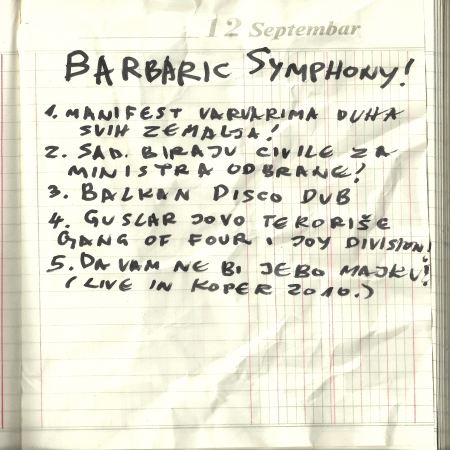 12 Septembar
BARBARIC SYMPHONY!
1. MANIFEST VARVARIMA DUHA
SVIH ZEMALJA!
2. SAD. BIRAJU CIVILE ZA
MINISTRA ODBRANE!
3. BALKAN DISCO DUB
4. GUSLAR JOVO TERORIŠE
GANG OF FOUR I JOY DIVISION!
5. DA VAM NE BI JEBO MAJKU!
(LIVE IN KOPER 2010.)